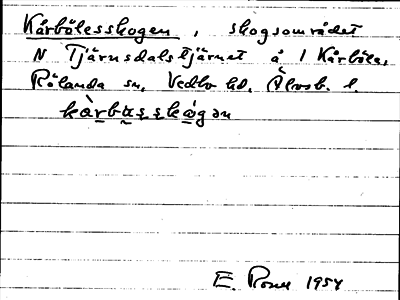 Kårbölesskogen, skogsområdet
N Tjärnsdalstjärnet å 1 Kårböle,
Rölanda sn, Vedbo hd, Älvsb. l.
E. 1954